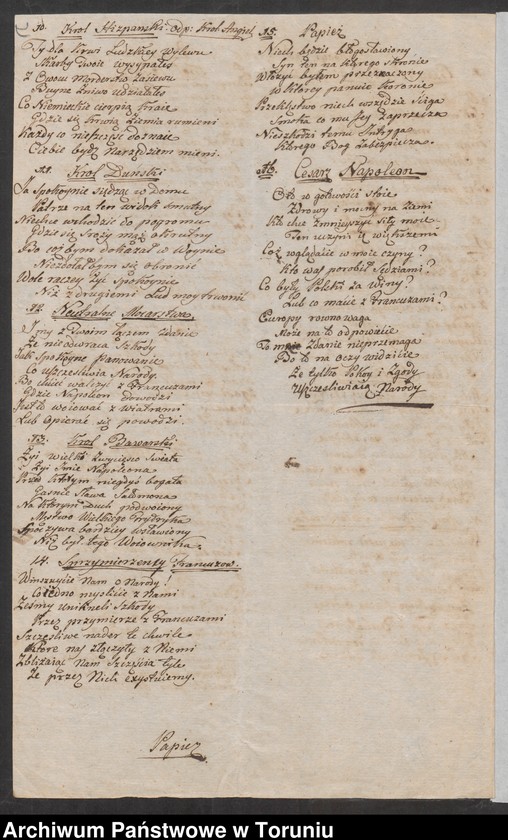 10. Krol Hiszpanski. Odp: Krol Angiel.
Ty dla Krwi Ludzkiey wylewu
Skarby Twoie wysypałeś
Z Twoiu Morderstw zasiewu
żniwo udziałałes
Co Niemieckie cierpią Kraie
Gdzie się krwią ziemia rumieni
Każdy co nieszczęść doznaie
Ciebie bydź Narzędziem mieni.
11. Krol Dunski
Ja Spokoynie siedząc w domu
Patrze na ten widok smutny
Niechce wchodzić do pogromu
Gdzie się sroży mąż okrutny
Bo coż bym dokazał w Woynie
Niezdołałbym się obronić
Wole raczey żyć Spokoynie
Niż z drugiemi Lud moy trwonić
12. Neutralne Mocarstwa.
I my z Twoim trzem zdanie
Że nieodwraca Szkody
Jak Spokoyne panowanie
Co uszczesliwia Narody.
Bo chcieć walczyć z Francuzami
Gdzie Napoleon dowodzi
Jest to woiować z wiatrami
Lub opierać się powodzi.
13. Krol Bawarski
Żyi wielki zwyciesco Swiata
Żyi Imie Napoleona
Przed ktorym niegdyś bogata
Gasnie Sława Salomona
Na ktorym Duch podwoiony
Męstwo Wielkiego Frydryka
Spoczywa bardziey wsławiony
Niż był tego Woiownika.
14. Sprzymierzeńcy Francuzow.
Winszuycie Nam o Narody!
Co iedno myslicie z Nami
Żesmy unikneli Szkody
Przez przymierze z Francuzami
Szczęsliwe nader te chwile
Ktore nas złączyły z Niemi
Zbliżaiąc Nam Szczęscia tyle
Że przez Nich exystuiemy.
Papiez
15. Papież
Niech będzie błogosławiony
Syn ten na ktorego skronie
Włożyc byłem przeznaczony
W ktorey panuie Koronie
Przeklęstwo niech wszędzie sciga
Smutka co mu ley zaprzecza
Nieszkodzi temu Intryga
Ktorego Bog zabezpiecza.
16. Cesarz Napoleon
Oto w gotowości stoie
Zdrowy i mocny na ziemi
Kto chce zmnieyszyć siłę moie
Ten uczyni ią większemi
Coż wglądacie w moie czyny?
Kto was porobił Sędziami?
Co były Polskie za winy?
Lub co macie z Francuzami?
Europy rownowaga
Może na to odpowiecie
To moie Zdanie nieprzemaga
Bo to na oczy widzicie
Że tylko Pokoy i Zgody
Uszczesliwiaią Narody
Archiwum Państwowe w Toruniu